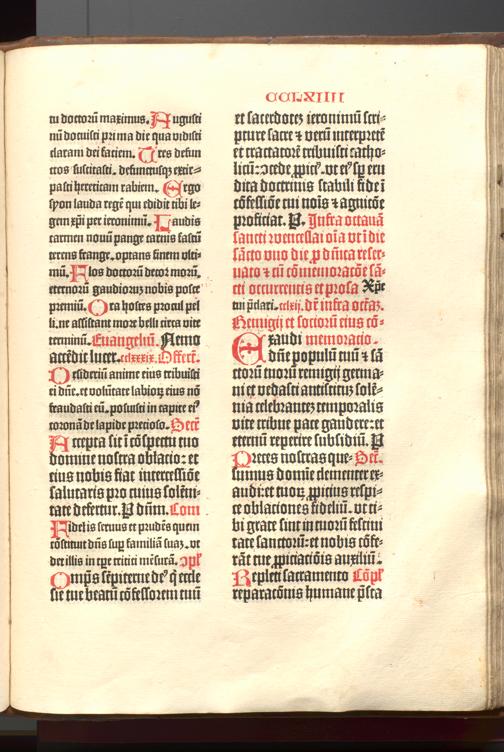 CCLXIIII
tu doctorū maximus. Augusti
nū docuisti prima die qua vidisti
claram dei faciem. Tres defun
ctos suscitasti. defunctusqꝫ extir⸗
pasti hereticam rabiem. Ergo
syon lauda regē qui edidit tibi le⸗
gem xp̄i per ieronimū. Laudis
carmen nouū pange carnis fastū
terens frange. optans finem vlti⸗
mū. Flos doctorū decor morū.
eternorū gaudiorꝫ nobis posce
premiū. Ora hostes procul pel
li. ne assistant more belli circa vite
terminū. Euangeliū. Nemo
accēdit lucer. cclxxxix. Offert.
Desideriū anime eius tribuisti
ei dn̄e. et volūtate labiorꝫ eius nō
fraudasti eū. posuisti in capite ei⁹
coronā de lapide precioso. Secr̄
Accepta sit ī cōspectu tuo
domine nostra oblacio: et
eius nobis fiat intercessiōe
salutaris pro cuius solēni⸗
tate defertur. P dn̄m. Com
Fidelis seruus et prudēs quem
cōstituit dn̄s suꝑ familiā suaꝫ. vt
det illis in tꝑe tritici mēsurā. 
Omp̄s sēpiterne de⁹ q̇ eccle
sie tue beatū cōfessorem tuū
et sacerdotēꝫ ieronimū scri⸗
pture sacre ⁊ verū interpretē
et tractatorē tribuisti catho⸗
licū: ꝯcede vt ei⁹ sꝑ eru
dita doctrinis stabili fide ī
cōfessiōe tui noīs ⁊ agnicōe
proficiat. P. Infra octauā
sancti wenceslai oīa vt ī die
sācto vno die ꝑ dn̄ica reser⸗
uato ⁊ cū cōmemoracōe sā⸗
cti occurrentis et prosa Xpē
tui cclxij. dr̄ infra octaꝫ.
Remigij et sociorū eius cō⸗
Exaudi memoracio.
dn̄e populū tuū ⁊ sā
ctorū tuorū remigij germa⸗
ni et vedasti antistitū solē⸗
nia celebrantēꝫ temporalis
vite tribue pace gaudere: et
eternū reperire subsidiū. P
Preces nostras que⸗ Secr̄.
sumus domīe clementer ex⸗
audi: et tuorꝫ ꝓpicius respi⸗
ce oblaciones fideliū. vt ti⸗
bi grate sint in tuorū festiui
tate sanctorū: et nobis cōfe⸗
rāt tue ꝓpiciaciōis auxiliū.
Repleti sacramento Cōpl̄
reparacōnis humane p̄sta